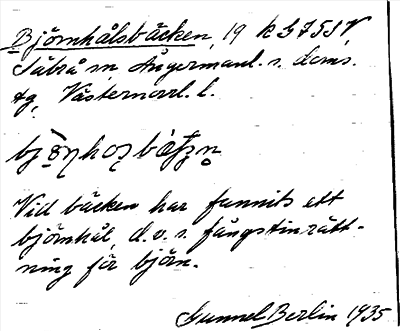 Björnhålsbäcken, 19 h G 7 5 S V,
Säbrå sn, Ångermanl. s. doms.
tg, Västernorrl. l.
Vid bäcken har funnits ett
björnhål, d.v.s. fångstinrätt-
ning för björn.
Gunnel Berlin 1935